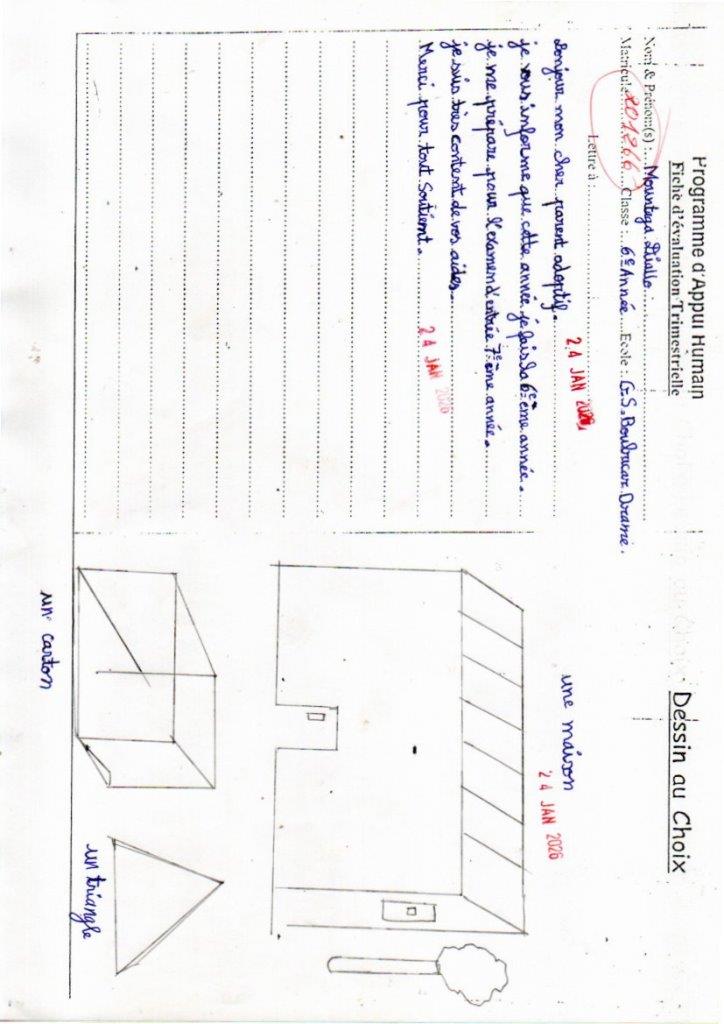 Programme d'Appui Humain
Fiche d'évaluation Trimestrielle
Nom & Prénom(s) : Mountaga Diallo
Matricule 201266 Classe : 6e Année Ecole : G.S. Boubacar Drame.
Lettre à :
24 JAN 2026
Bonjour mon cher parent adoptif.
je vous informe que cette année je fais la 6e ème année.
je me prépare pour l'examen d'entrée 7e ème année.
je suis très content de vos aides.
Merci pour tout soutient.
24 JAN 2026
Dessin au Choix
une maison
24 JAN 2026
un carton
un triangle